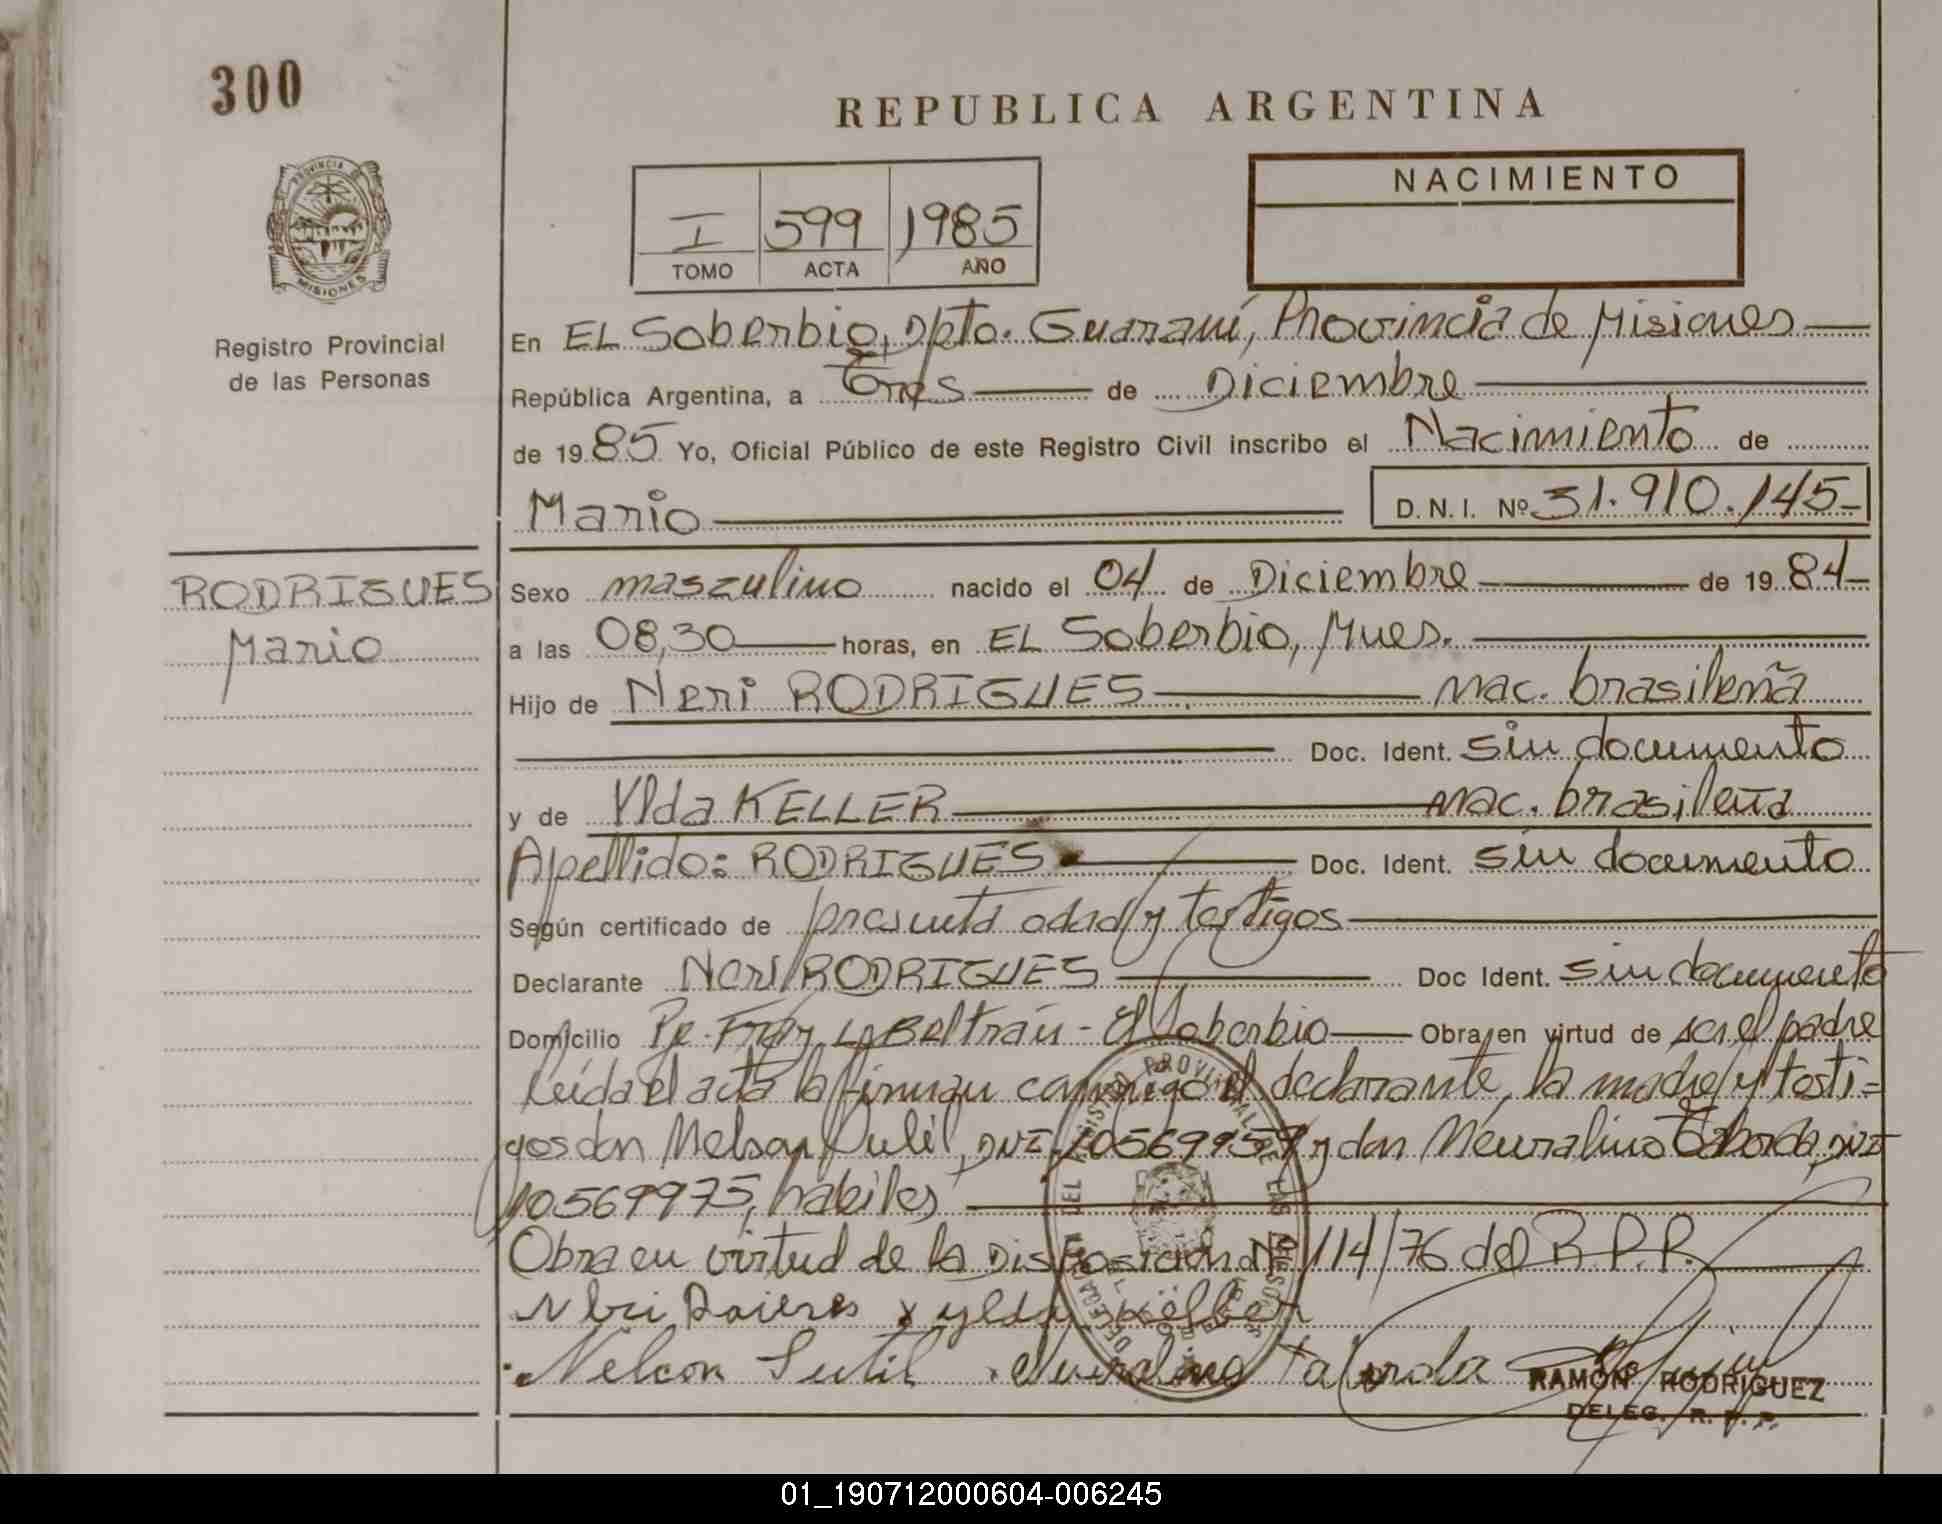 300
REPUBLICA ARGENTINA
NACIMIENTO
I 599 1985
TOMO ACTA AÑO
PROVINCIA DE MISIONES
Registro Provincial
de las Personas
En EL Soberbio, Dpto. Guaraní, Provincia de Misiones
República Argentina, a Tres de Diciembre
de 1985 Yo, Oficial Público de este Registro Civil inscribo el Nacimiento de
Mario D.N.I. Nº 31.910.145-
RODRIGUES
Mario
Sexo masculino nacido el 04 de Diciembre de 1984
a las 08,30 horas, en EL Soberbio, Mnes.
Hijo de Neri RODRIGUES nac. brasileña
Doc. Ident. sin documento
y de Ylda KELLER nac. brasileña
Apellido: RODRIGUES Doc. Ident. sin documento
Según certificado de presunta edad y testigos
Declarante Neri RODRIGUES Doc Ident. sin documento
Domicilio Pje. Fray L. Beltrán - El Soberbio Obra en virtud de ser el padre
Leída el acta la firman conmigo el declarante, la madre y testi=
gos don Nelson Sutil, DNI 10569959 y don Neuralino Taborda, DNI
10569975, habiles
Obra en virtud de la Disposición Nº 114/76 del R.P.P.
x ylda keller
Nelcon Sutil Taborda
RAMON RODRIGUEZ
DELEG. R. P. P.
01_190712000604-006245